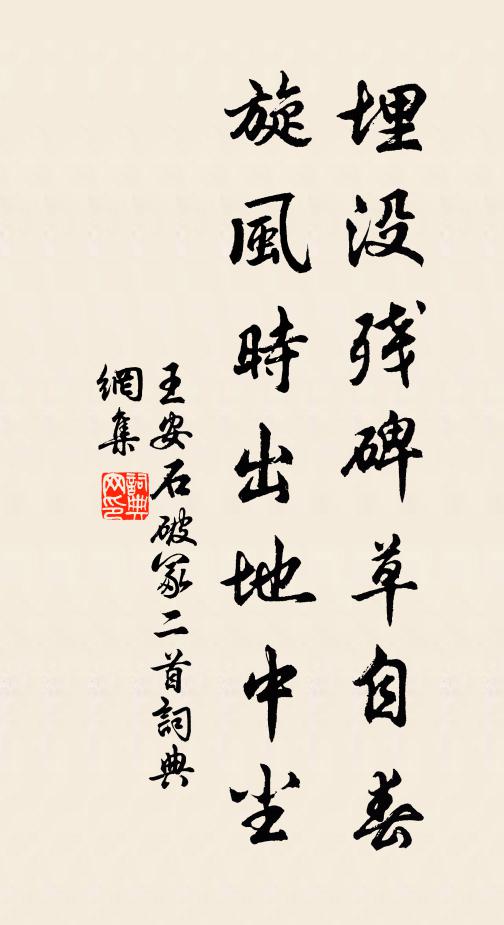 埋没残碑草自春
旋風時出地中尘
王安石破冢二首詞典
網集
詞典
网印